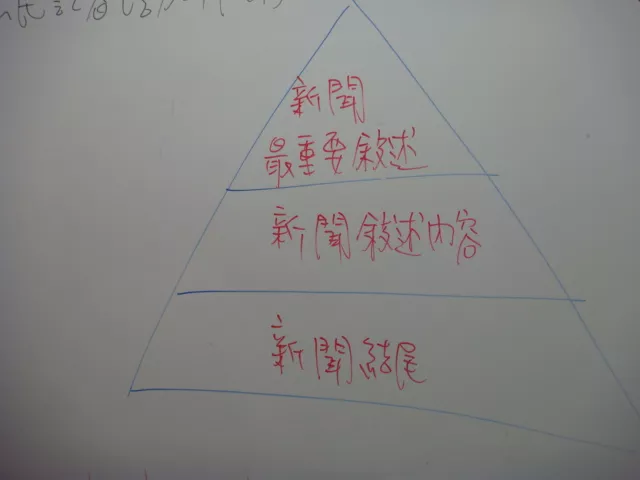 新聞
最重要敘述
新聞敘述內容
新聞結尾